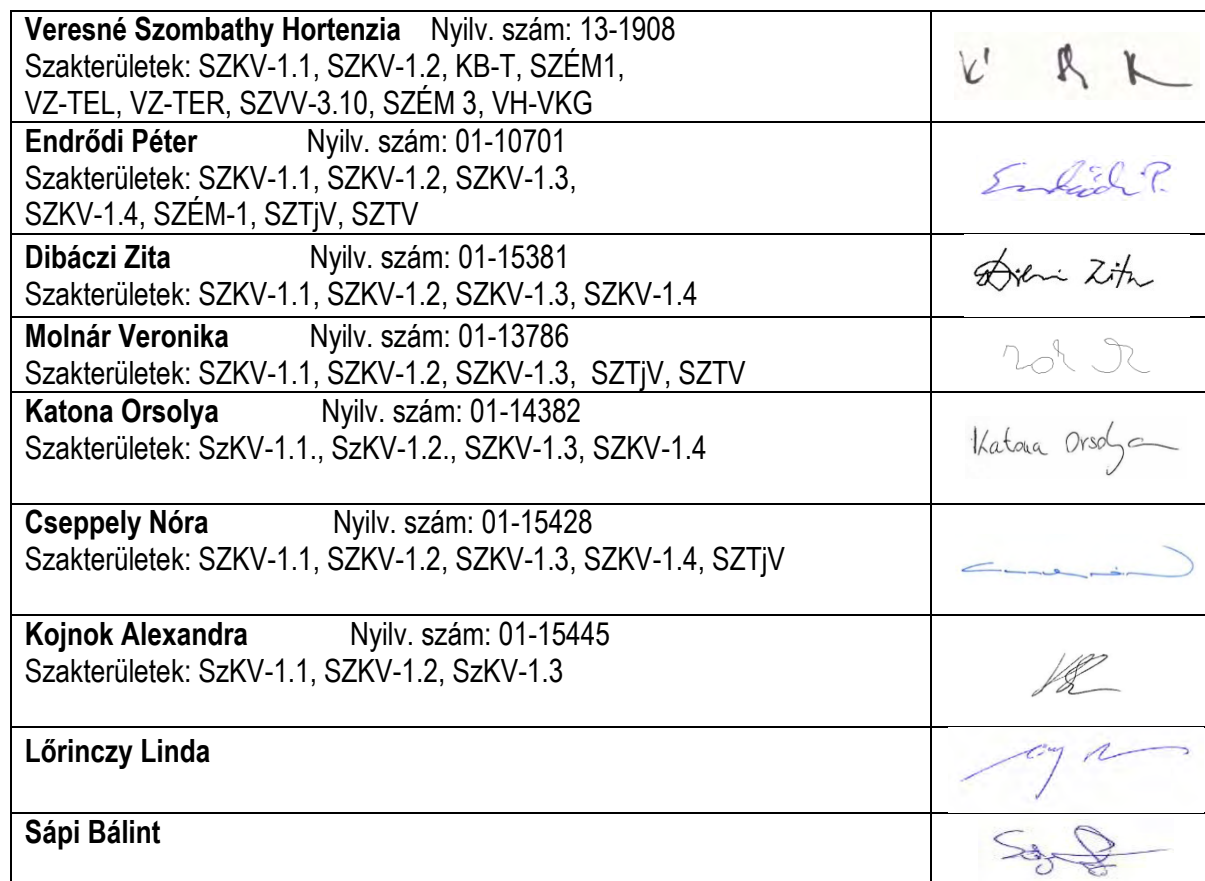 Veresné Szombathy Hortenzia Nyilv. szám: 13-1908
Szakterületek: SZKV-1.1, SZKV-1.2, KB-T, SZÉM1,
VZ-TEL, VZ-TER, SZVV-3.10, SZÉM 3, VH-VKG
Endrődi Péter Nyilv. szám: 01-10701
Szakterületek: SZKV-1.1, SZKV-1.2, SZKV-1.3,
SZKV-1.4, SZÉM-1, SZTjV, SZTV
Dibáczi Zita Nyilv. szám: 01-15381
Szakterületek: SZKV-1.1, SZKV-1.2, SZKV-1.3, SZKV-1.4
Molnár Veronika Nyilv. szám: 01-13786
Szakterületek: SZKV-1.1, SZKV-1.2, SZKV-1.3, SZTjV, SZTV
Katona Orsolya Nyilv. szám: 01-14382
Szakterületek: SzKV-1.1., SzKV-1.2., SZKV-1.3, SZKV-1.4
Katona Orsolya
Cseppely Nóra Nyilv. szám: 01-15428
Szakterületek: SZKV-1.1, SZKV-1.2, SZKV-1.3, SZKV-1.4, SZTjV
Kojnok Alexandra Nyilv. szám: 01-15445
Szakterületek: SzKV-1.1, SZKV-1.2, SzKV-1.3
Lőrinczy Linda
Sápi Bálint